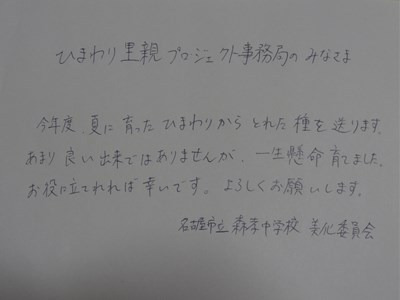 ひまわり里親プロジェクト事務局のみなさま
今年度、夏に育ったひまわりからとれた種を送ります。
あまり良い出来ではありませんが、一生懸命育てました。
お役に立てれば幸いです。よろしくお願いします。
名古屋市立 森孝中学校 美化委員会